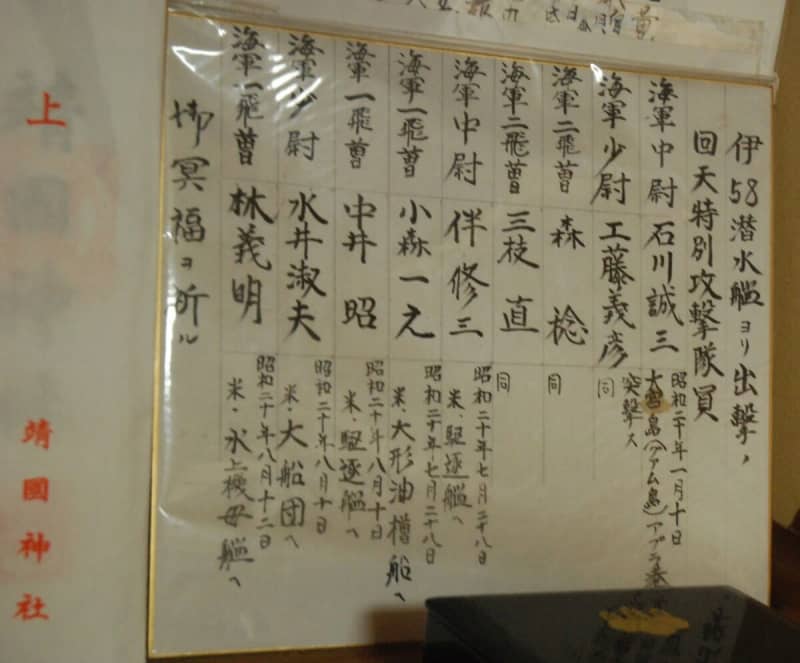 伊58潜水艦ヨリ出撃ノ
回天特別攻撃隊員
海軍中尉 石川誠三 昭和二十年一月十日
大宮島(グァム島)アプラ
突撃ス
海軍少尉 工藤義彦 同
海軍二飛曹 森 稔 同
海軍二飛曹 三枝 直 同
海軍中尉 伴 修二 昭和二十年七月二十八日
米、駆逐艦へ
海軍一飛曹 小森一之 昭和二十年七月二十八日
米、大形油槽船へ
海軍一飛曹 中井 昭 昭和二十年八月十日
米、駆逐艦へ
海軍少尉 水井淑夫 昭和二十年八月十日
米、大船団へ
海軍一飛曹 林義明 昭和二十年八月十二日
米、水上機母艦へ
御冥福ヲ祈ル
上
靖國神社